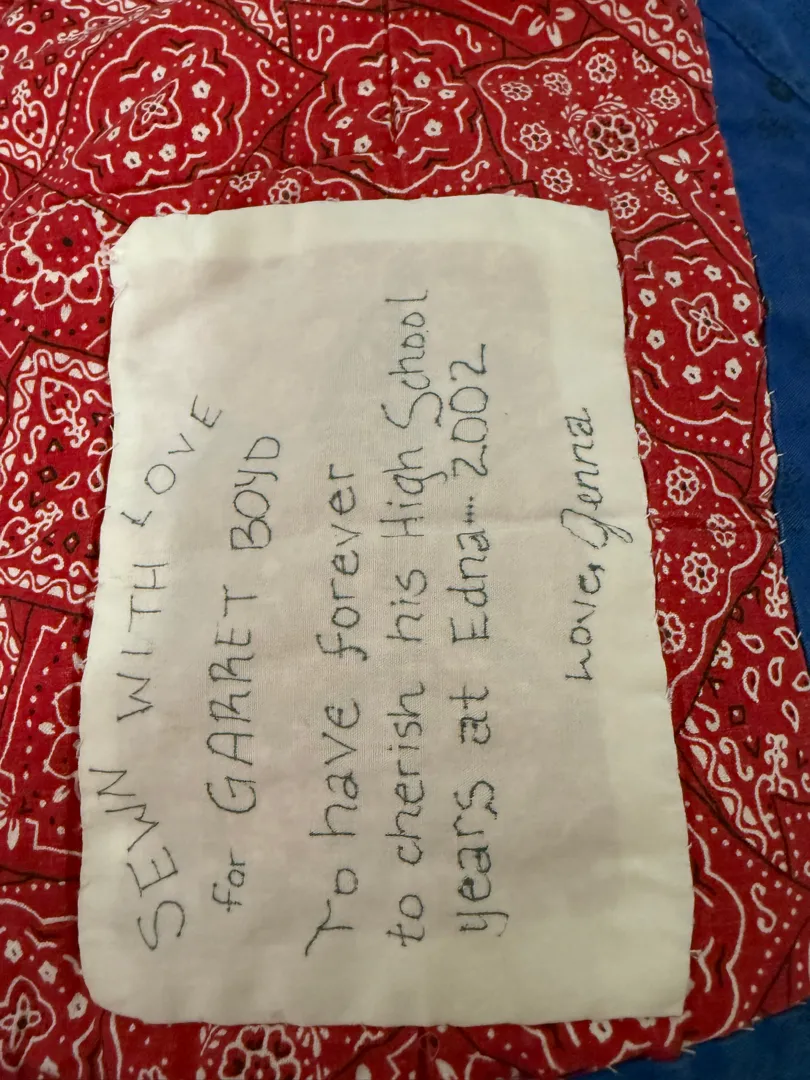 SEWN WITH LOVE
for GARRET BOYD
To have forever
to cherish his High School
years at Edna... 2002
Love, Jenna